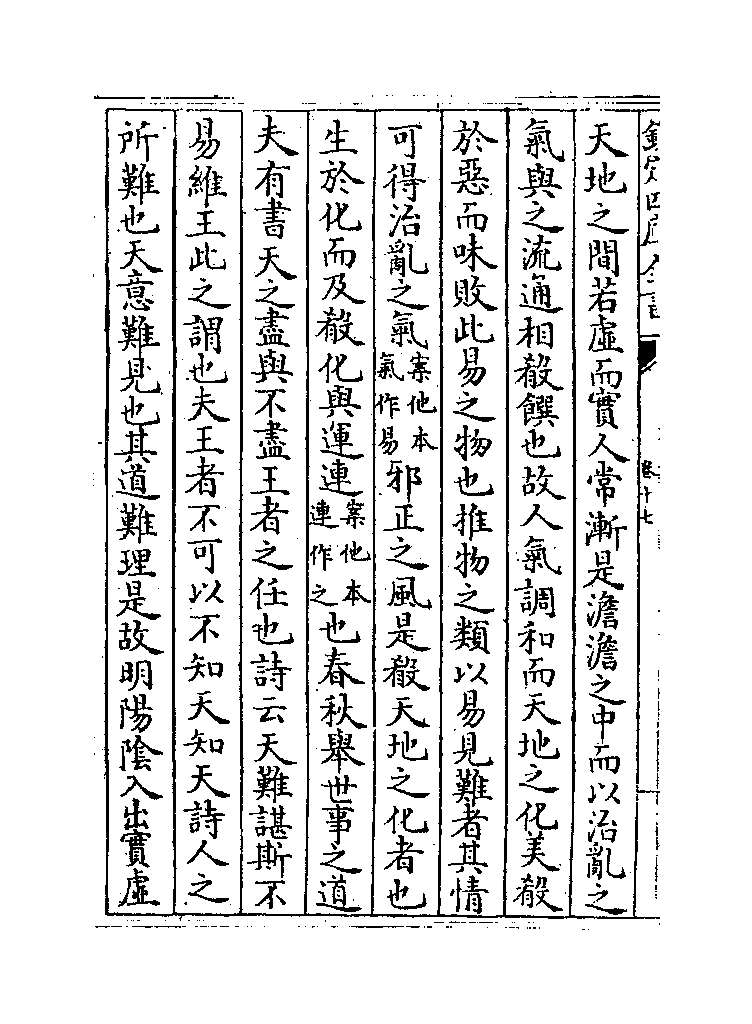 欽定四庫全書
卷十七
天地之間若虛而實人常漸是澹澹之中而以治亂之
氣與之流通相殽饌也故人氣調和而天地之化美殽
於惡而味敗此易之物也推物之類以易見難者其情
可得治亂之氣案他本氣作易邪正之風是殽天地之化者也
生於化而反殽化與運連案他本連作之也春秋舉世事之道
夫有書天之盡與不盡王者之任也詩云天難諶斯不
易維王此之謂也夫王者不可以不知天知天詩人之
所難也天意難見也其道難理是故明陽陰入出實虛